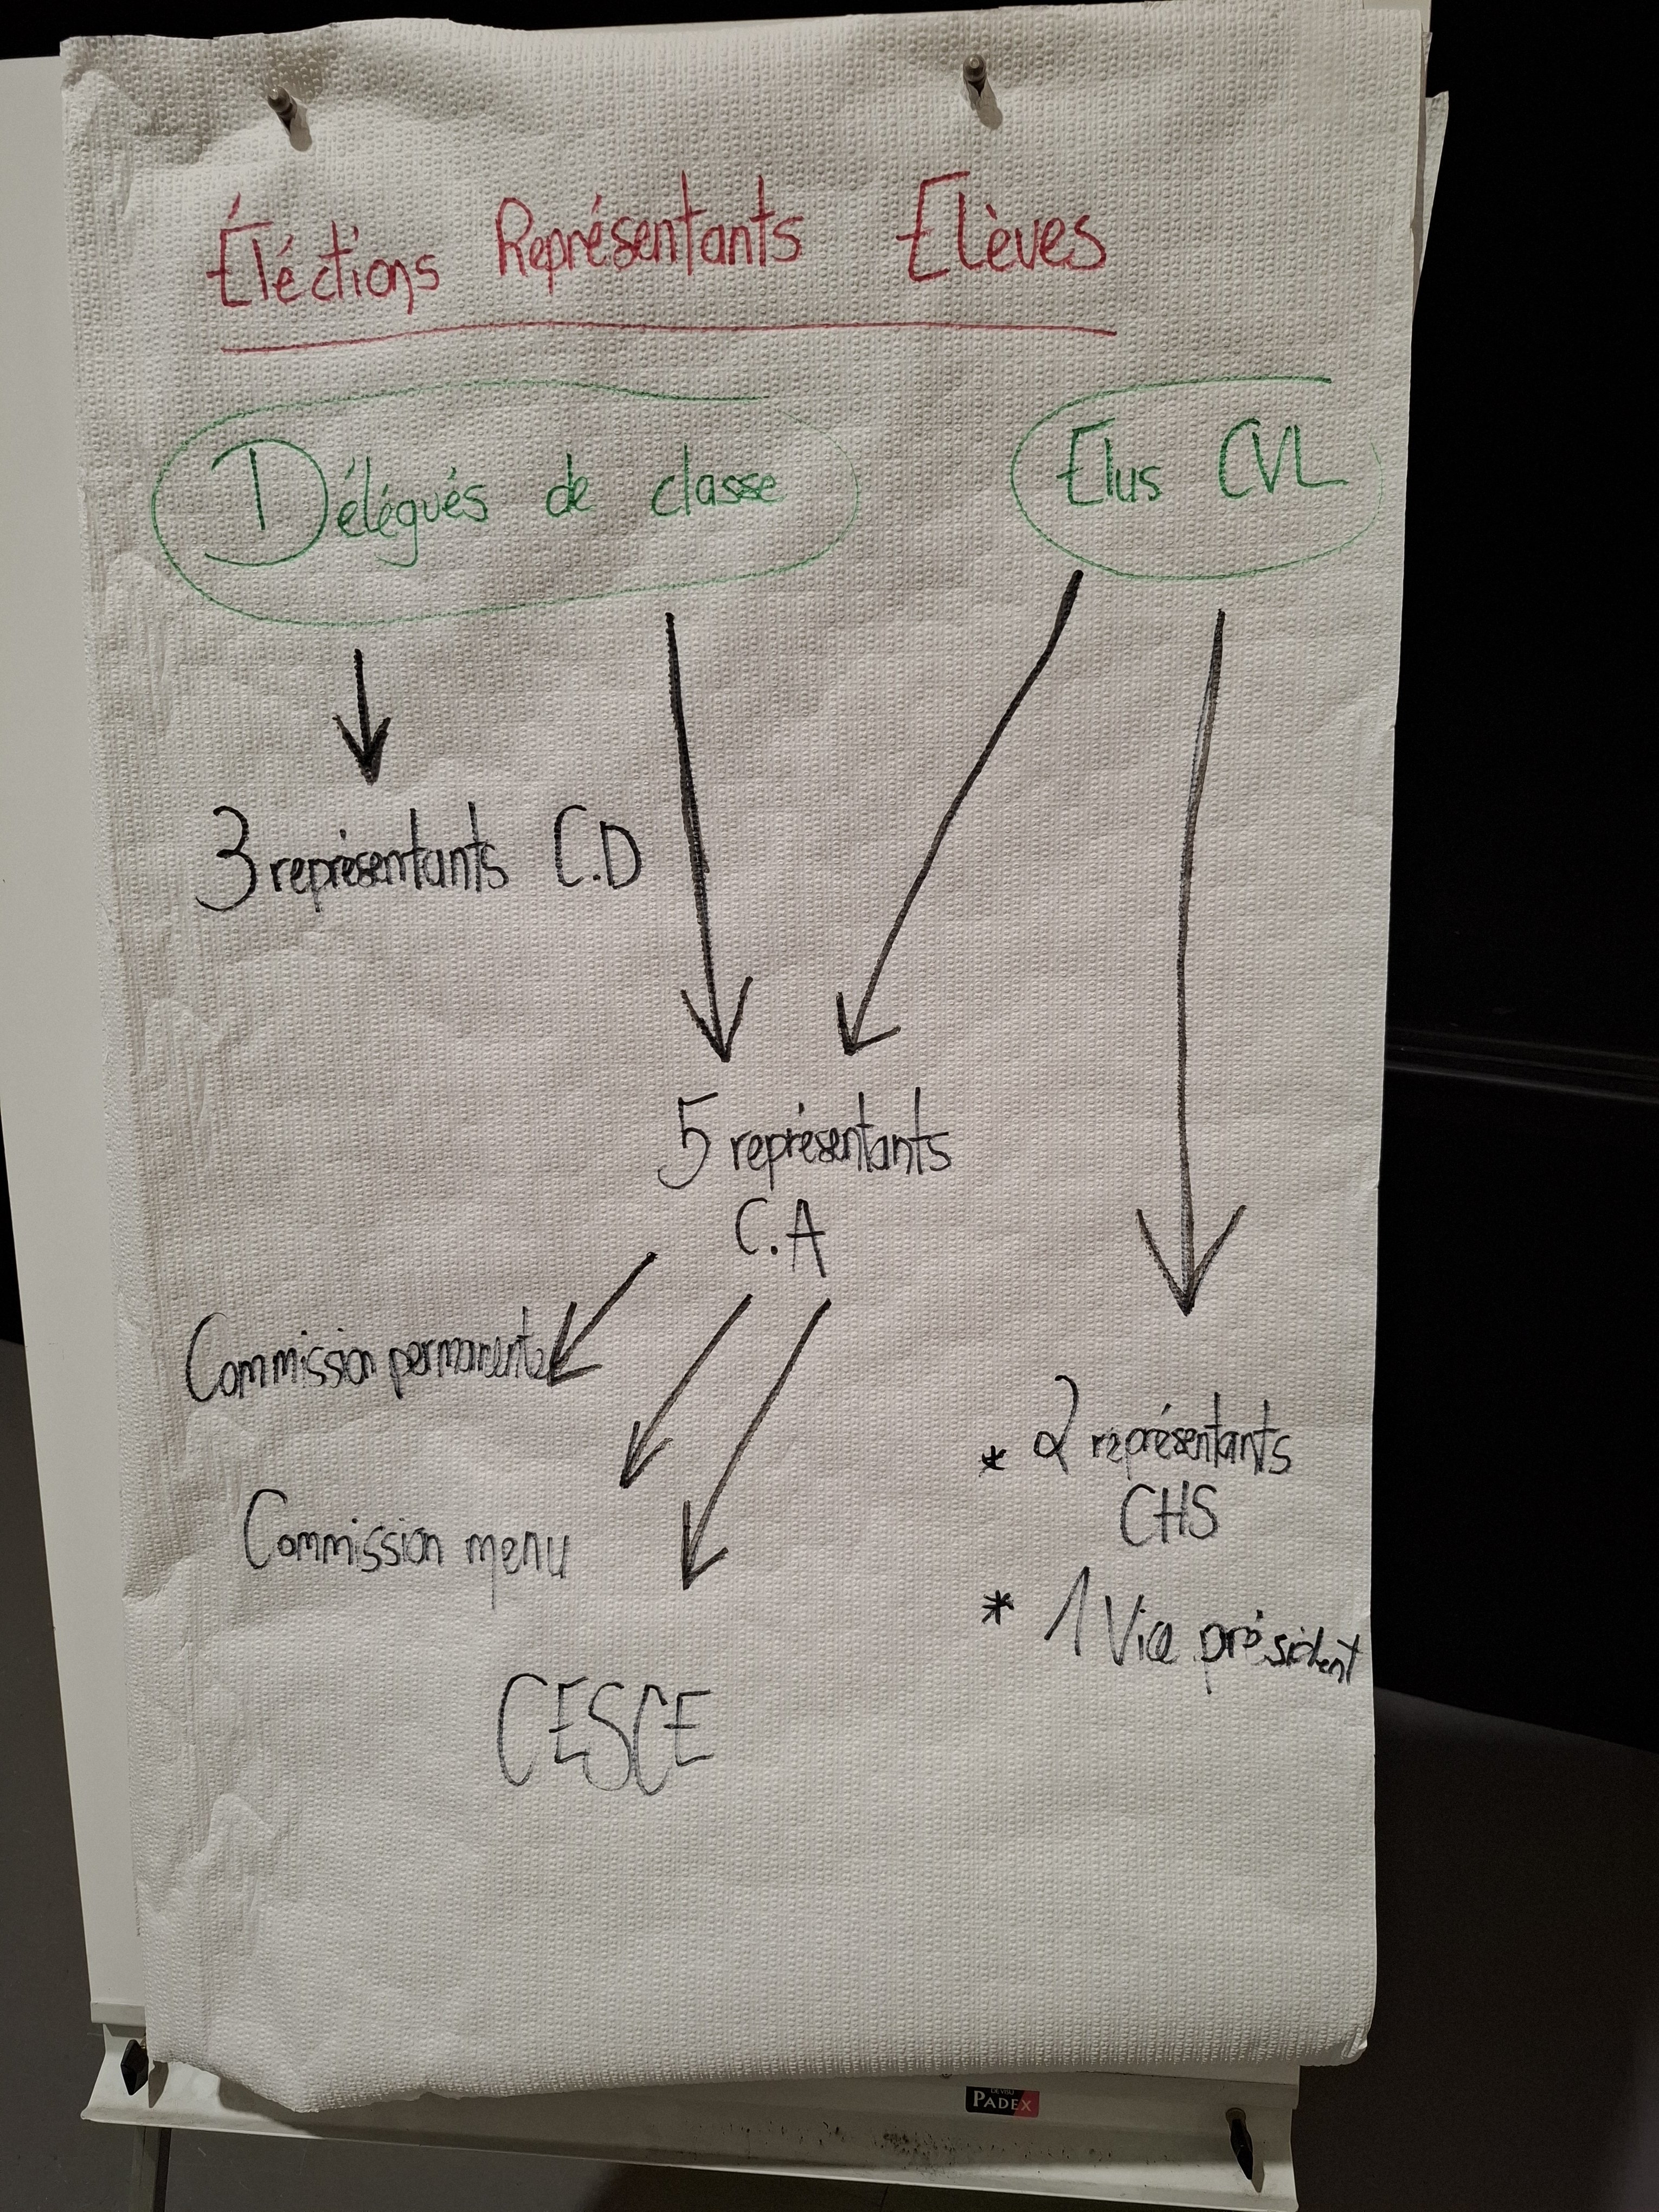 Éléctions Représentants Elèves
Délégués de classe
Elus CVL
3 représentants C.D
5 représentants
C.A
Commission permanente
Commission menu
CESCE
* 2 représentants
CHS
* 1 Vice président
PADEX